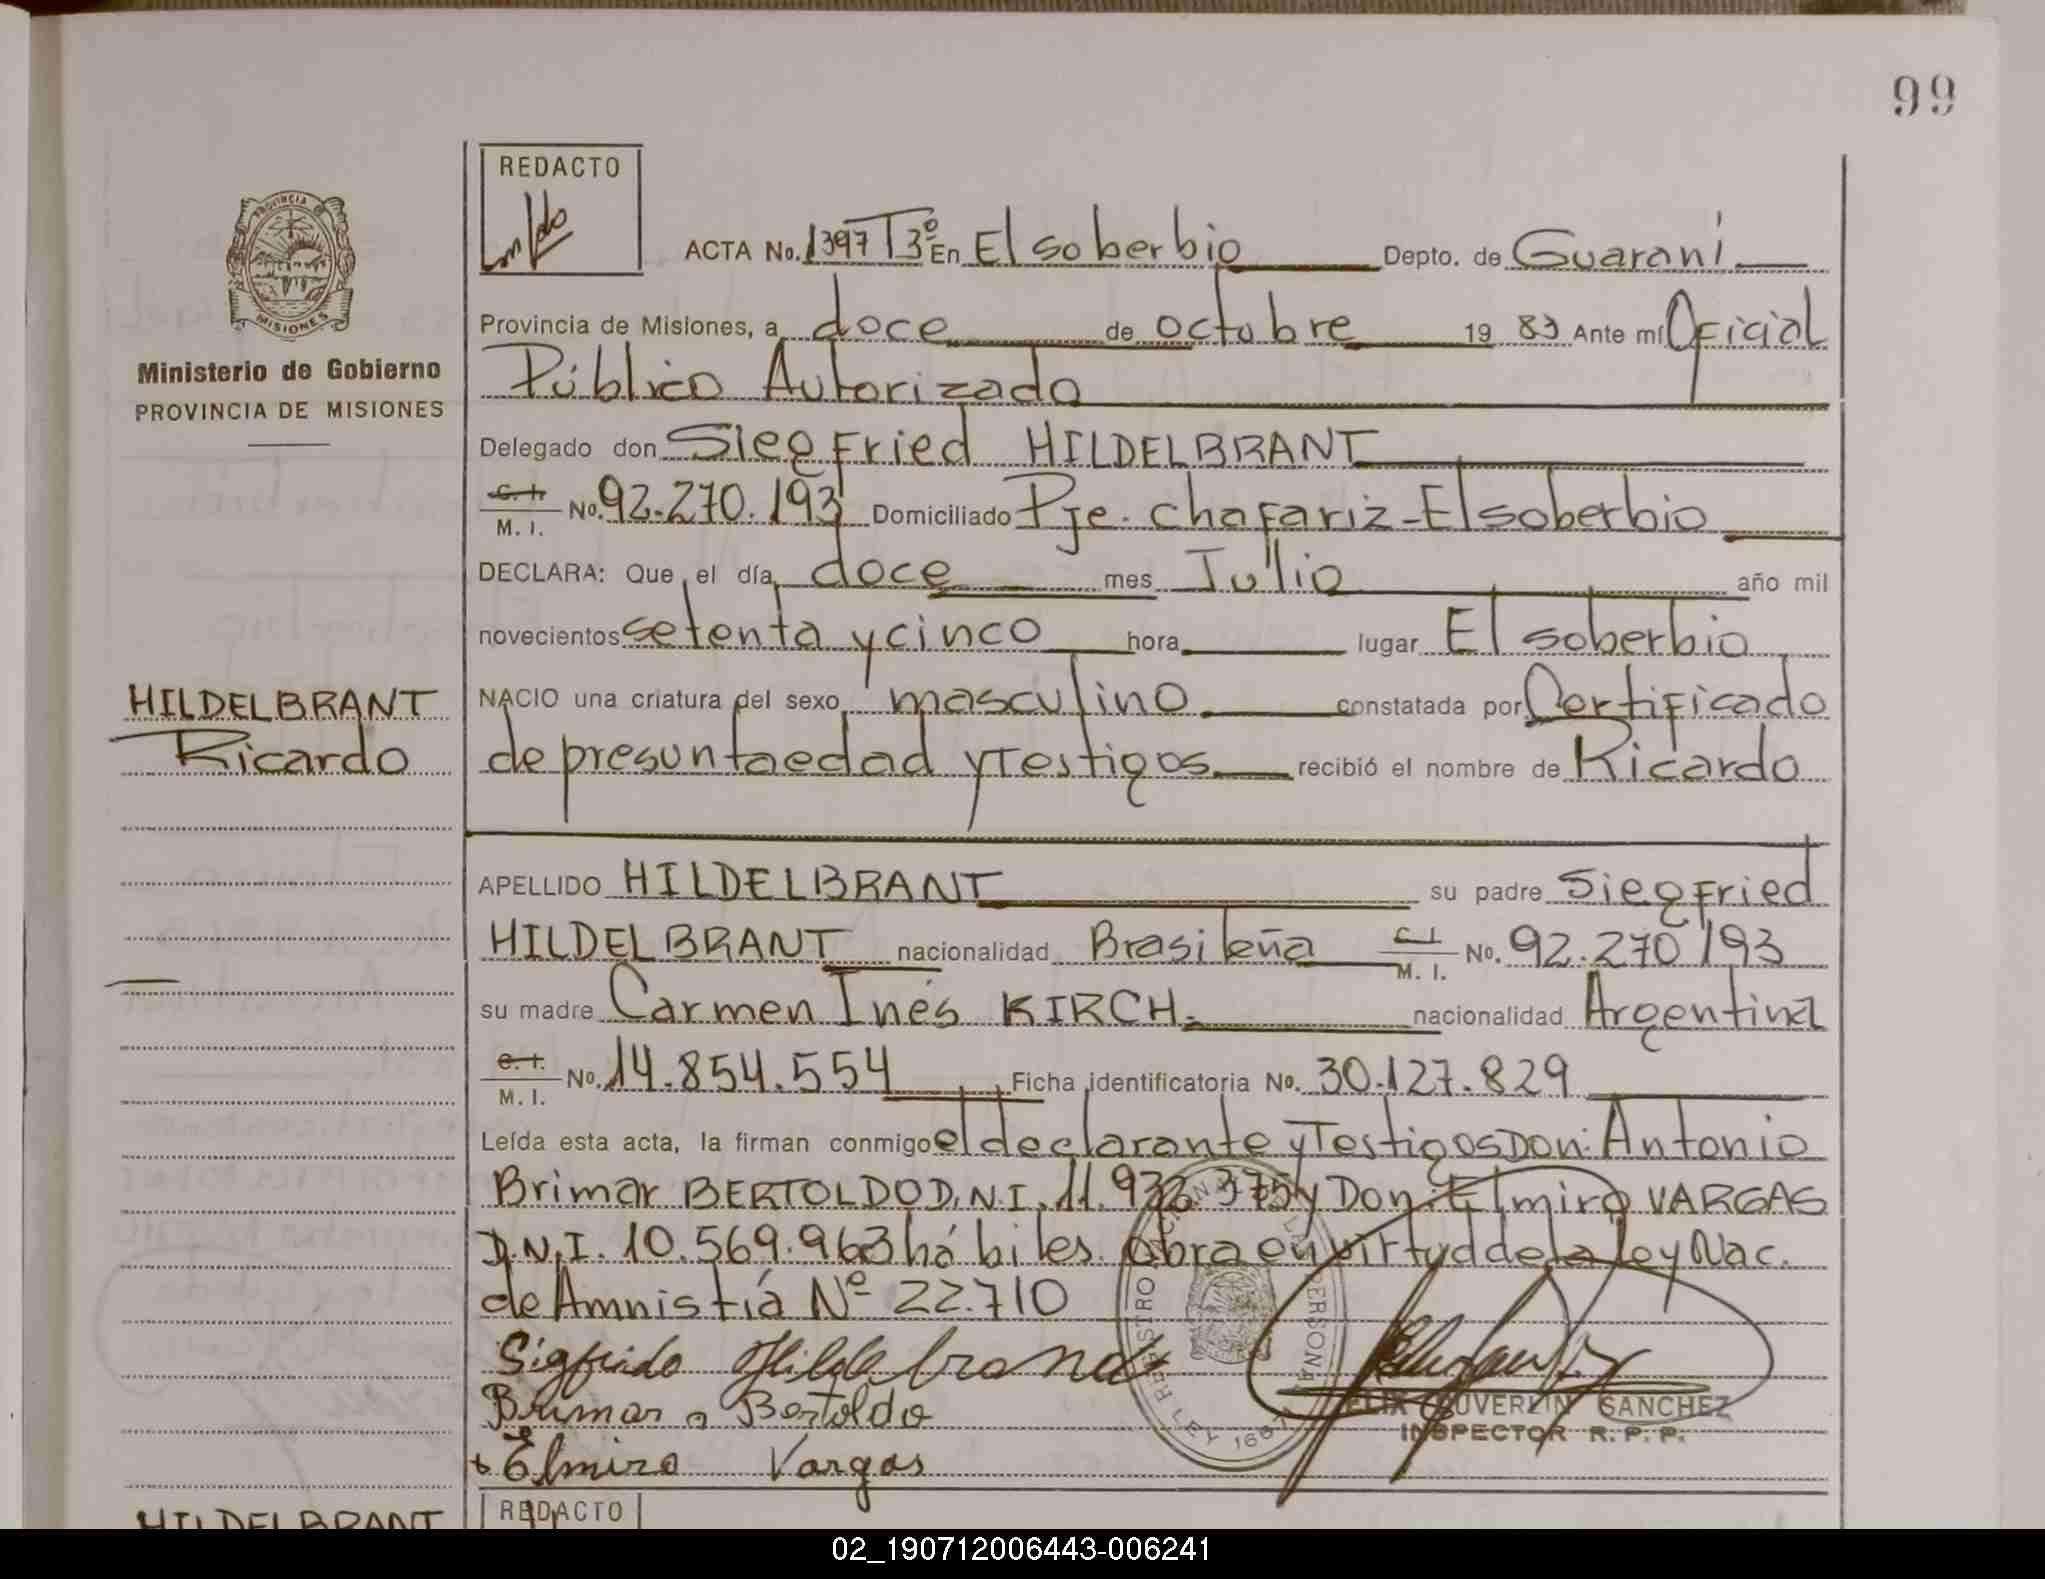 99
REDACTO
ACTA No. 1397 T3º En El soberbio Depto. de Guaraní
Provincia de Misiones, a doce de octubre 19 83 Ante mí Oficial
Público Autorizado
Delegado don Siegfried HILDELBRANT
C. I. / M. I. No. 92.270.193 Domiciliado Pje. Chafariz - El soberbio
DECLARA: Que el día doce mes Julio año mil
novecientos setenta y cinco hora lugar El soberbio
NACIO una criatura del sexo masculino constatada por Certificado
de presunta edad y Testigos recibió el nombre de Ricardo
PROVINCIA
MISIONES
Ministerio de Gobierno
PROVINCIA DE MISIONES
HILDELBRANT
Ricardo
APELLIDO HILDELBRANT su padre Siegfried
HILDELBRANT nacionalidad Brasileña C. I. / M. I. No. 92.270.193
su madre Carmen Inés KIRCH. nacionalidad Argentina
C. I. / M. I. No. 14.854.554 Ficha identificatoria No. 30.127.829
Leída esta acta, la firman conmigo el declarante y Testigos Don: Antonio
Brimar BERTOLDO D.N.I. 11.932.375 y Don: Elmiro VARGAS
D.N.I. 10.569.963 hábiles. Obra en virtud de la ley Nac.
de Amnistiá Nº 22.710
Sigfrido Hildebrand
Brimar a Bertoldo
Elmiro Vargas
REGISTRO NACIONAL DE LAS PERSONAS
LEY 1667
FELIX SANCHEZ
INSPECTOR R. P. P.
HILDELBRANT
REDACTO
02_190712006443-006241